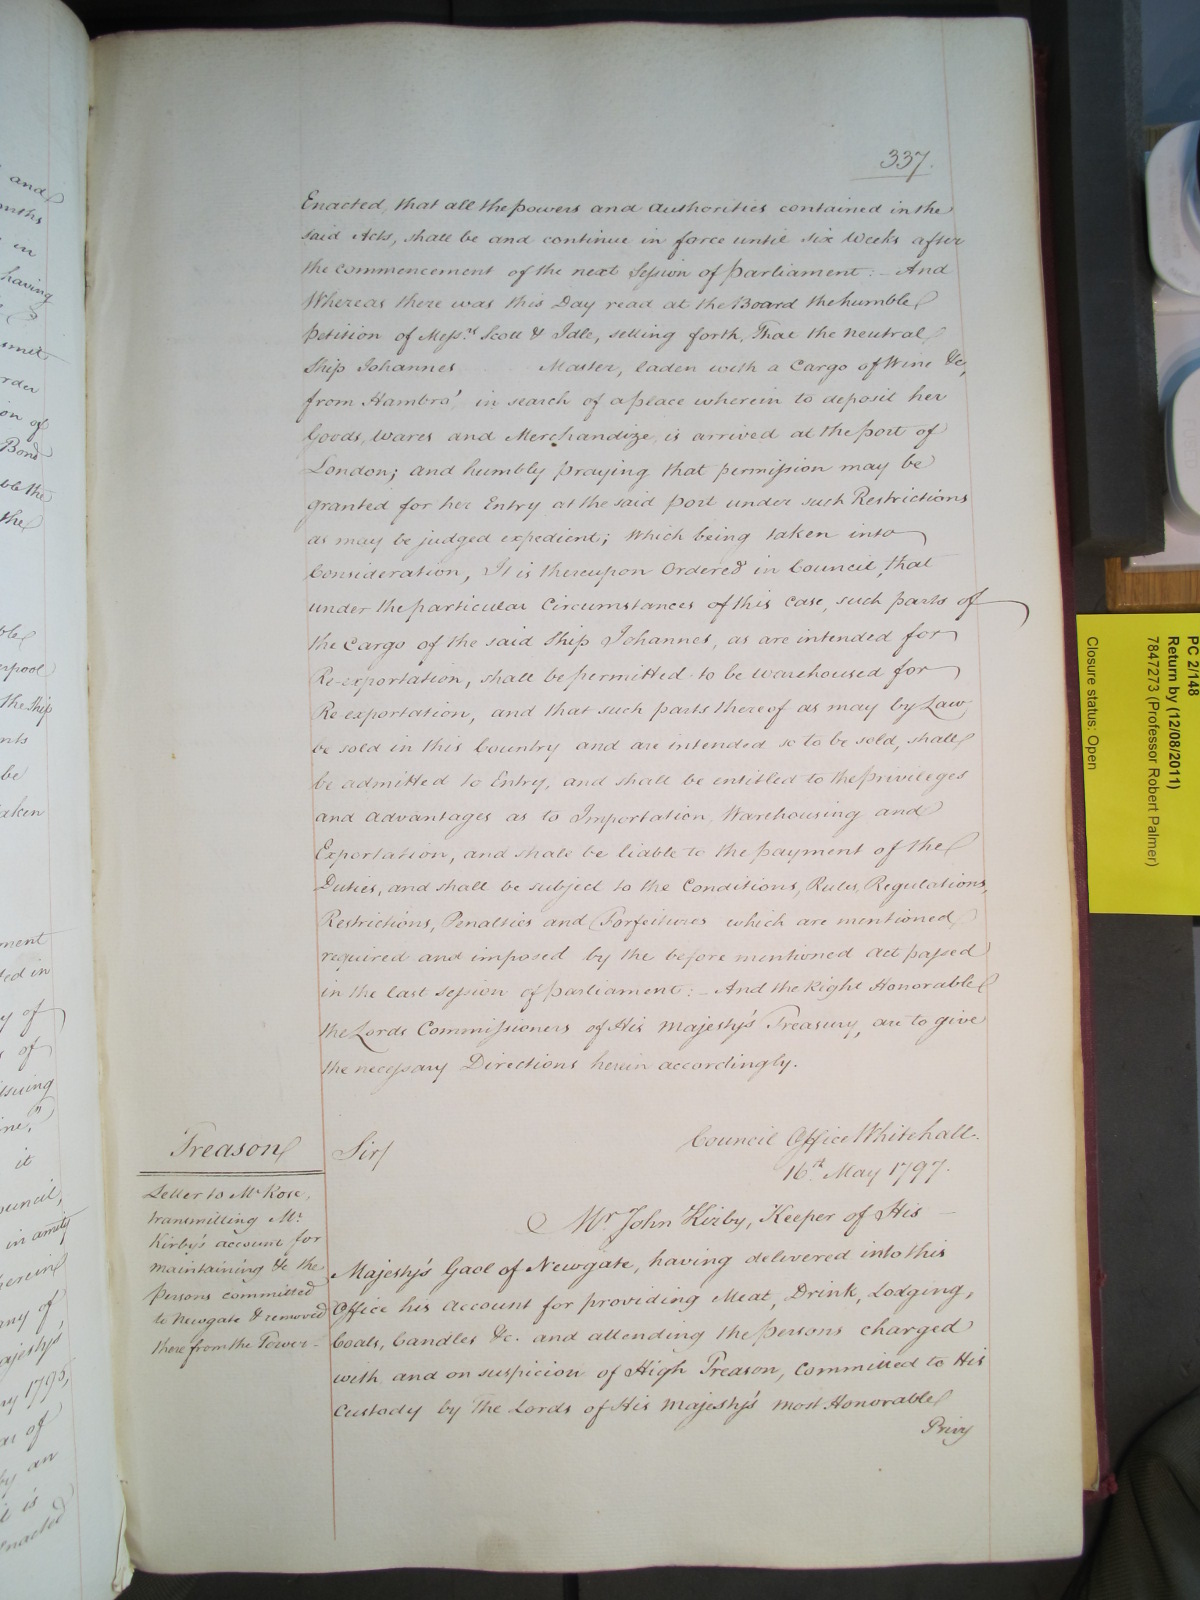 337.
Enacted, that all the powers and authorities contained in the
said Acts, shall be and continue in force until six Weeks after
the commencement of the next Session of parliament:- And
Whereas there was this Day read at the Board the humble
petition of Mess.rs Scott & Idle, setting forth, That the neutral
Ship Johannes Master, laden with a Cargo of Wine &c,
from Hambro' in search of a place wherein to deposit her
Goods, Wares and Merchandize, is arrived at the port of
London; and humbly praying that permission may be
granted for her Entry at the said port under such Restrictions
as may be judged expedient; Which being taken into
Consideration, It is thereupon Ordered in Council, that
under the particular Circumstances of this Case, such parts of
the Cargo of the said Ship Johannes, as are intended for
Re-exportation, shall be permitted to be warehoused for
Re exportation, and that such parts thereof as may by Law
be sold in this Country and are intended so to be sold, shall
be admitted to Entry, and shall be entitled to the privileges
and advantages as to Importation, Warehousing and
Exportation, and shall be liable to the payment of the
Duties, and shall be subject to the Conditions, Rules, Regulations,
Restrictions, Penalties and Forfeitures which are mentioned
required and imposed by the before mentioned Act passed
in the last Session of parliament:- And the Right Honorable
the Lords Commissioners of His Majesty's Treasury, are to give
the necessary Directions herein accordingly.
Treason
Letter to Mr Rose,
transmitting Mr
Kirby's account for
maintaining &c the
persons committed
to Newgate & removed
there from the Tower-
Council Office Whitehall.
16th May 1797.
Sir/
Mr John Kirby, Keeper of His
Majesty's Gaol of Newgate, having delivered into this
Office his account for providing Meat, Drink, Lodging,
Coals, Candles &c. and attending the persons charged
with and on suspicion of High Treason, committed to His
Custody by The Lords of His Majesty's most Honorable
Privy
PC 2/148
Return by (12/08/2011)
7847273 (Professor Robert Palmer)
Closure status: Open